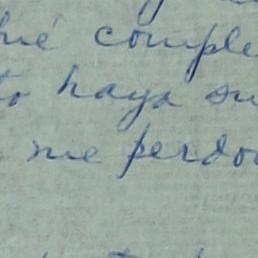 né comple
to haya su
me perdo